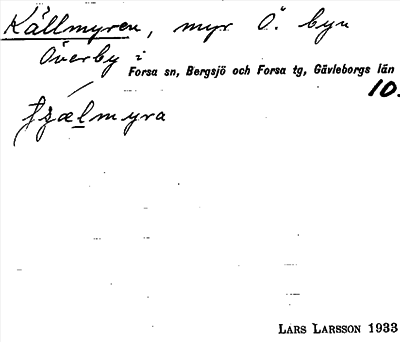 Källmyren, myr Ö. byn
Överby i
Forsa sn, Bergsjö och Forsa tg, Gävleborgs län
10.
myra
LARS LARSSON 1933